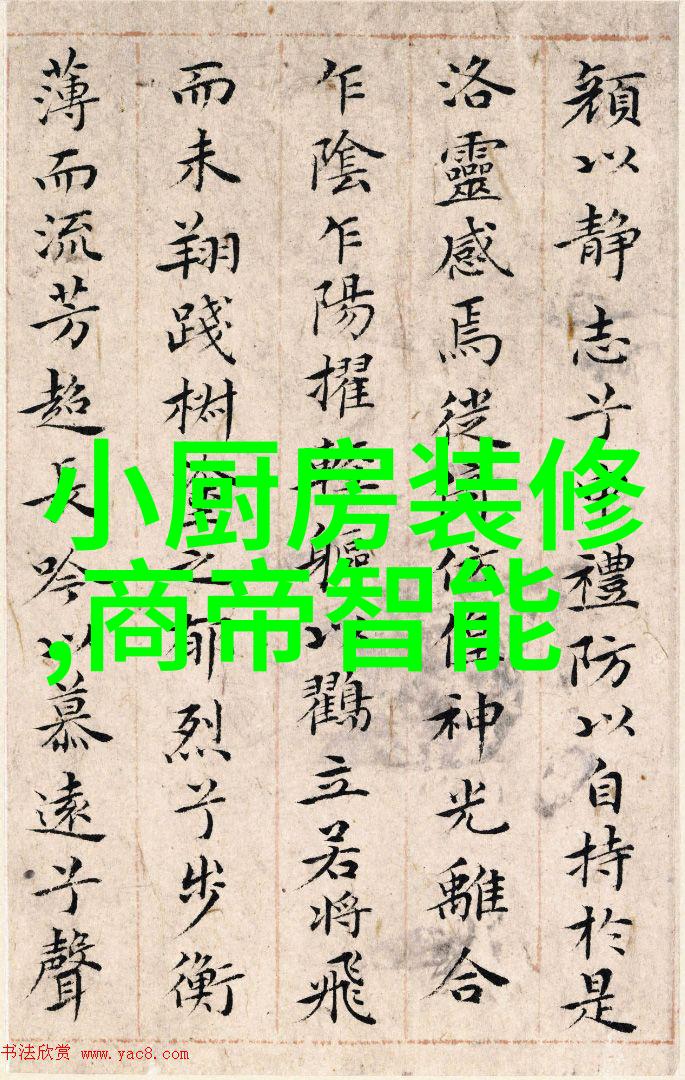 顏以静志兮申禮防以自持於是
洛靈感焉徙倚仿偟神光離合
乍陰乍陽擢輕軀以鸖立若将飛
而未翔踐椒塗之郁烈兮步衡
薄而流芳超長吟以慕遠兮聲
小厨房装修
,商帝智能
书法欣赏 www.yac8.com